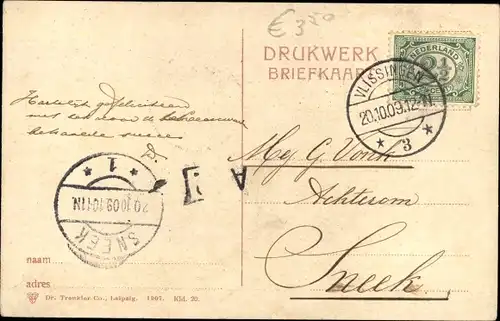 € 3.50
DRUKWERK
BRIEFKAART
NEDERLAND
2½
VLISSINGEN
20.10.09.12-1N
* 3 *
Hartelijk gefeliciteerd
met
behaalde succes
D.
Mej G. Vonk
Achterom
Sneek.
* 1 *
20.10.09.10-11N
SNEEK
A
naam
adres
Dr. Trenkler Co., Leipzig. 1907. Kld. 20.